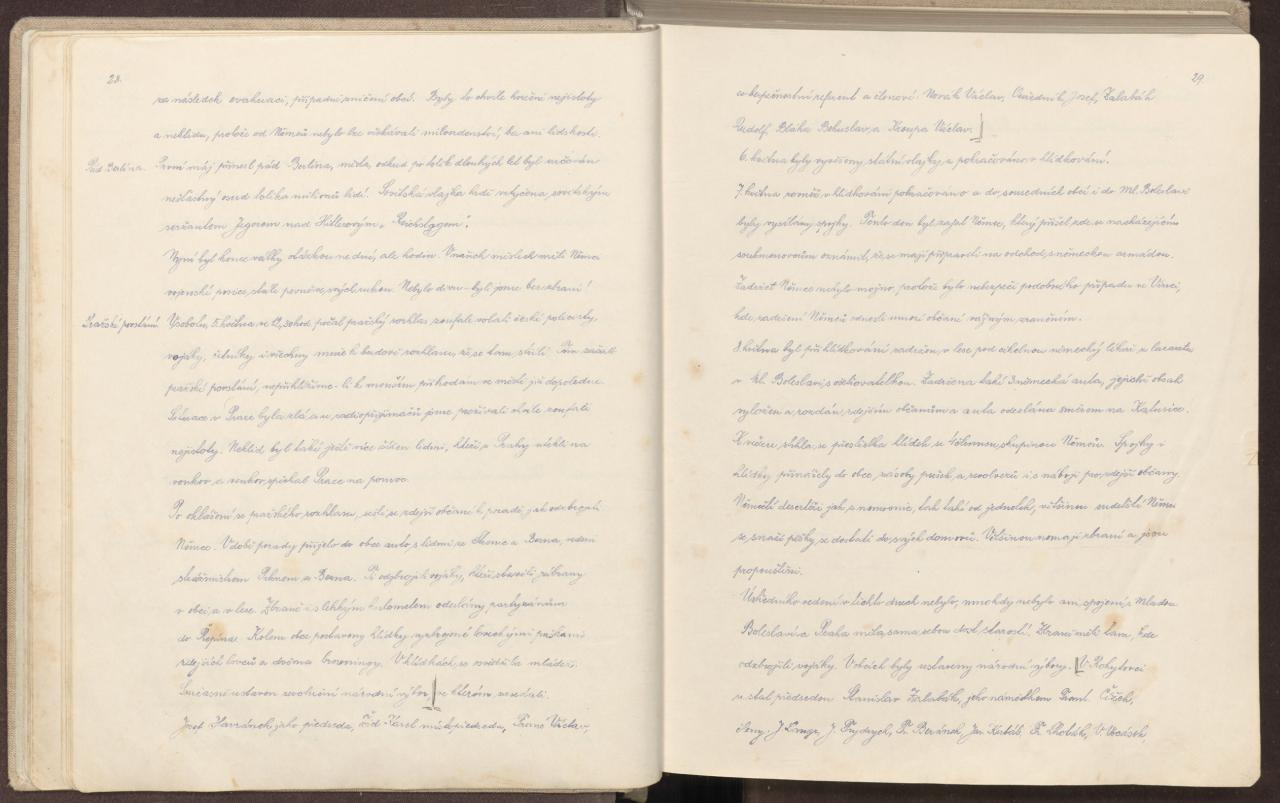 28.
za následek evakuaci, případně zničení obcí. Byly to chvíle hrozné nejistoty
a neklidu, protože od Němců nebylo lze očekávati milosrdenství, ba ani lidskosti.
Pád Berlína. První máj přinesl pád Berlína, místa, odkud po tolik dlouhých let byl určován
nešťastný osud tolika milionů lidí. Sovětská vlajka tedy vztyčena sovětským
seržantem Jegorem nad Hitlerovým „Reichstagem“!
Nyní byl konec války otázkou ne dní, ale hodin. V našich místech měli Němci
vojenské posice stále pevně ve svých rukou. Nebylo divu – byli jsme bezbranní!
Pražské povstání. V sobotu 5. května ve 12, hod počal pražský rozhlas zoufale volati české policisty,
vojáky, četníky i všechny muže k budově rozhlasu, že se tam střílí. Tím začalo
pražské povstání, nepřihlížíme-li k menším příhodám ve městě již dopoledne.
Situace v Praze byla zlá a u radiopřijimačů jsme prožívali chvíle zoufalé
nejistoty. Neklid byl také ještě více šířen lidmi, kteří z Prahy utekli na
venkov a venkov spěchal Praze na pomoc.
Po ohlášení ze pražského rozhlasu, sešli se zdejší občané k poradě, jak odzbrojiti
Němce. V době porady přijelo do obce auto s lidmi ze Skorice a Bezna, vedení
strážmistrem z Bezna. Ti odzbrojili vojáky, kteří stavěli zábrany
v obci a v lese. Zbraně i s lehkým kulometem odeslány partyzánům
do Řepína. Kolem obce postaveny hlídky vyzbrojené loveckými puškami
zdejších lovců a dvěma browningy. V hlídkách se osvědčila mládež.
Současně ustaven revoluční národní výbor, ve kterém zasedali:
Josef Havránek jako předseda, Karel místopředseda, Václav,
29
co bezpečnostní referent a členové: Novák Václav, Josef, Zalabák
Rudolf, Bláha Bohuslav, a Kroupa Václav.
6. května byly vyvěšeny státní vlajky a pokračováno v hlídkování.
7. května rovněž v hlídkování pokračováno a do sousedních obcí i do Ml. Boleslavi
byly vysílány spojky. Tento den byl zajat Němec, který přišel zde se nacházejícím
soukmenovcům oznámit, že se mají připraviti na odchod s německou armádou.
Zadržet Němce nebylo možno, protože bylo nebezpečí podobného případu ve Vinci,
kde zadržení Němců odneslo mnoho občanů vážným zraněním.
8. května byl při hlídkování zadržen v lese pod cihelnou německý lékař z lazaretu
v Ml. Boleslavi s ošetřovatelkou. Zadržena také 3 německá auta, jejichž obsah
vyložen a rozdán zdejším občanům a auta odeslána směrem na Katusice.
K večeru strhla se přestřelka hlídek se 4 člennou skupinou Němců. Spojky i
hlídky přinášely do obce zásoby pušek a revolverů i s náboji pro zdejší občany.
Němečtí desertéři jak z nemocnic, tak také od jednotek, většinou sudetští Němci
se snaží pěšky se dostati do svých domovů. Většinou nemají zbraní a jsou
propouštěni.
Ústředního vedení v těchto dnech nebylo, mnohdy nebylo ani spojení s Mladou
Boleslaví a Praha měla sama sebou dost starostí. Zbraně měli tam, kde
odzbrojili vojáky. V obcích byly ustaveny národní výbory. V Rokytovci
se stal předsedou Stanislav Zalabák, jeho náměstkem Frant. Čížek,
členy: J. Lange, J. Frydrych, Fr. Beránek, Jar. Kubát, Fr. Chobák, V.